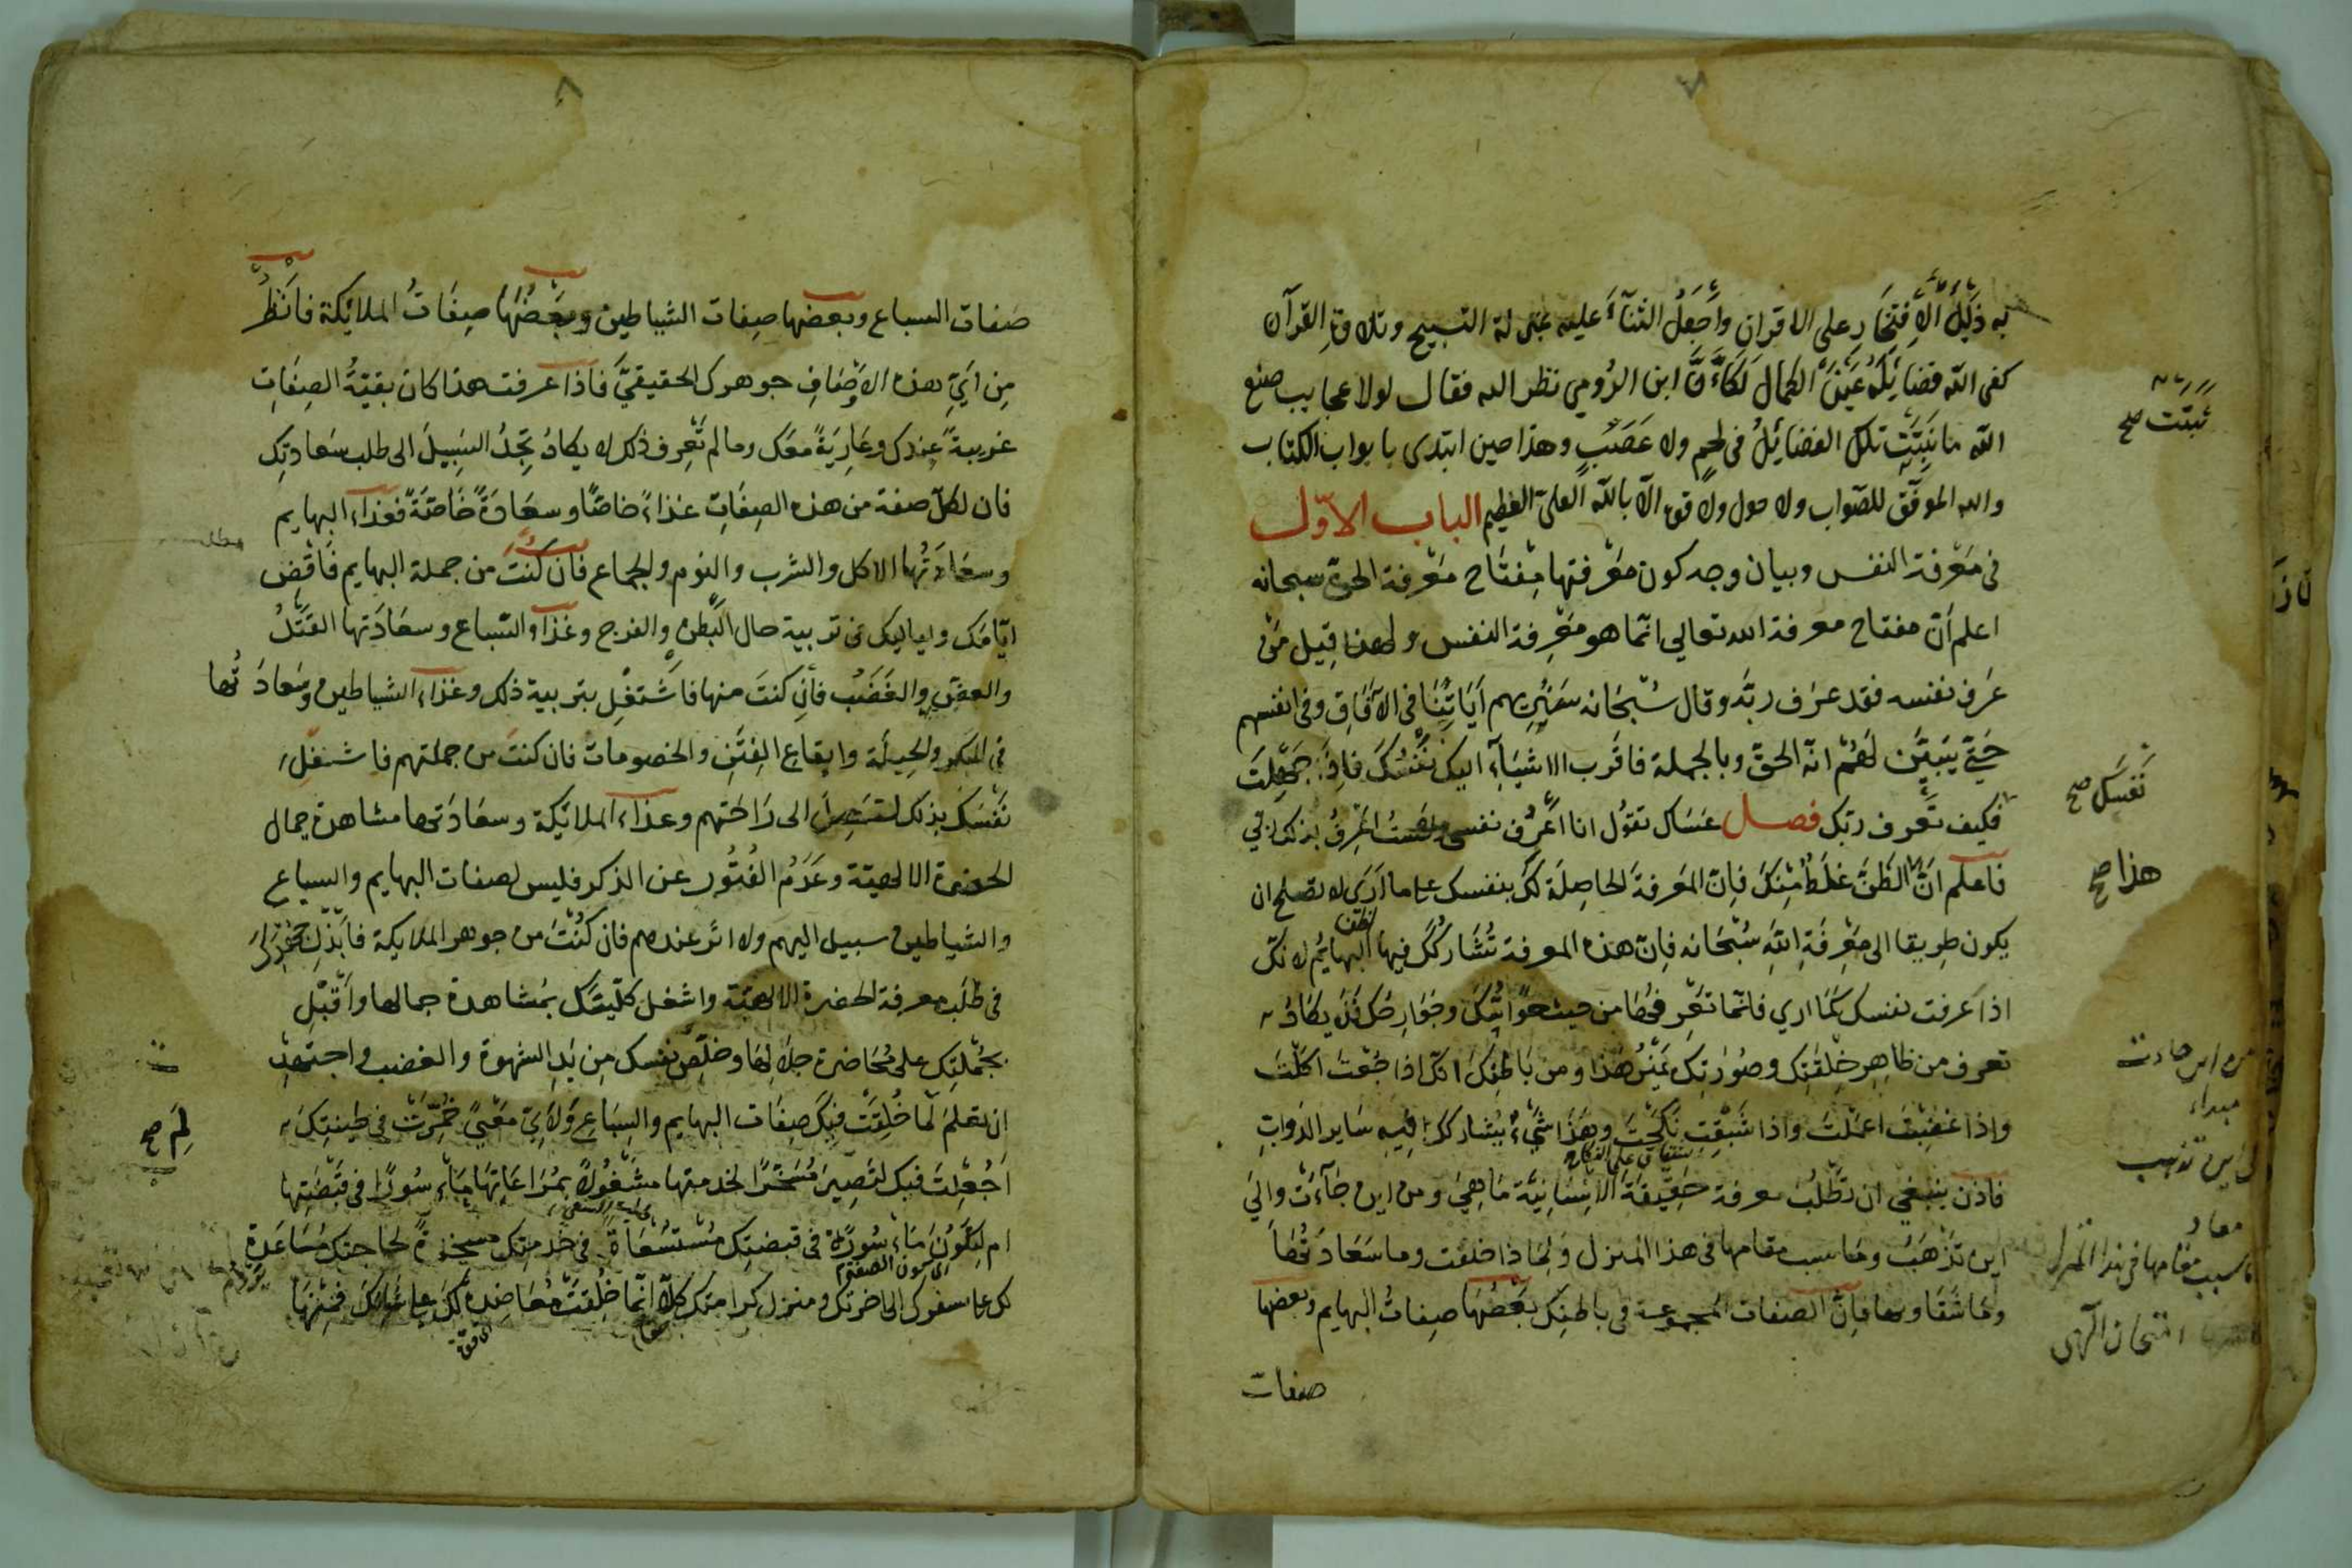 به ذيل الافتخار على الاقران وأجعل الثنآء عليه بمنزلة التسبيح وتلاوة القرآن
كفى الله فضايله عين الكمال لكأنّ ابن الرومي نظر اليه فقال لولا عجايب صنع
الله ما نبتت تلك الفضايل في لحم ولا عصب وهذا حين ابتدى بابواب الكتاب
والله الموفق للصواب ولا حول ولا قوة الا بالله العلى العظيم الباب الاوّل
في معرفة النفس وبيان وجه كون معرفتها مفتاح معرفة الحق سبحانه
اعلم أنّ مفتاح معرفة الله تعالي انّما هو معرفة النفس ولهذا قيل من
عرف نفسه فقد عرف ربّه وقال سُبحانه سنريهم آياتنا في الآفاق وفي انفسهم
حتّي يتبيّن لهُم انّه الحقّ وبالجملة فاقرب الاشيآء اليك نفسك فاذا جهلت
فكيف تعرف ربّك فصل عساك تقول انا اعرف نفسي ولست اعرف بذلك ربي
فاعلم انّ الظنّ غلط منك فانّ المعرفة الحاصلة لك بنفسك على ما ارى لا تصلح ان
يكون طريقا الى معرفة الله سُبحانه فانّ هذه المعرفة تُشاركك فيها البهايم لانّك
اذا عرفت نفسك كما اري فانّما تعرفها من حيث حوايّك وجوارحك فلا يكاد
تعرف من ظاهر خلقتك وصُورتك غير هذا ومن باطنك انّك اذا جُعت اكلت
واذا غضبت اعملت واذا شبقت نكحت وهذا شيء يُشاركك فيه ساير الدوابّ
فاذن ينبغي ان تطلب معرفة حقيقة الانسانيّة ما هي ومن اين جآءت والي
اين تذهب وما سبب مقامها في هذا المنزل ولماذا خلقت وما سعادتها
وما شقاوتها فانّ الصفات المجموعة في باطنك بعضها صفات البهايم وبعضها
صفات
نبتت صح
نفسك صح
هذا صح
من اين جاءت
مبداء
الى اين تذهب
معاد
ما سبب مقامها في هذا المنزل
صفات السباع وبعضها صفات الشياطين وبعضها صفات الملائكة فانظر
من اي هذه الاوصاف جوهرك الحقيقيّ فاذا عرفت هذا كان بقيّة الصفات
غريبة عندك وعارية معك وما لم تعرف ذلك لا يكاد تجد السبيل الى طلب سعادتك
فان لكلّ صفة من هذه الصفات غذاء خاصّا وسعادة خاصّة فغذاء البهايم
وسعادتها الاكل والشرب والنوم والجماع فان كنت من جملة البهايم فاقض
ايّامك ولياليك في تربية حال البطن والفرج وغذاء السّباع وسعادتها القتل
والعضّ والغضب فان كنت منها فاشتغل بتربية ذلك وغذاء الشياطين وسعادتها
في المكر والحيلة وايقاع الفتن والخصومات فان كنت من جملتهم فاشغل
نفسك بذلك لتصل الى راحتهم وغذاء الملائكة وسعادتها مشاهدة جمال
الحضرة الالهيّة وعدم الفتور عن الذكر فليس لصفات البهايم والسباع
والشياطين سبيل اليهم ولا اثر عندهم فان كنت من جوهر الملايكة فابذل جهدك
في طلب معرفة الحضرة الالهيّة واشغل كلّيتك بمشاهدة جمالها واقبل
بجملتك على محاضرة جلالها وخلّص نفسك من يد الشهوة والغضب واجتهد
ان تعلم لما خلقت فيك صفات البهايم والسباع ولايّ معنى خمّرت في طينتك
اجعلت فيك لتصير مسخّرا لخدمتها مشغولا بمراعاتها مأسورا في قبضتها
ام لتكون مأسورة في قبضتك مستسعاة في خدمتك مسخّرة لحاجتك مساعدة
لك على سفرك الى اخرتك ومنزل كرامتك كلّا انّما خلقت معاضدة لك على شانك فمنها
لم صح